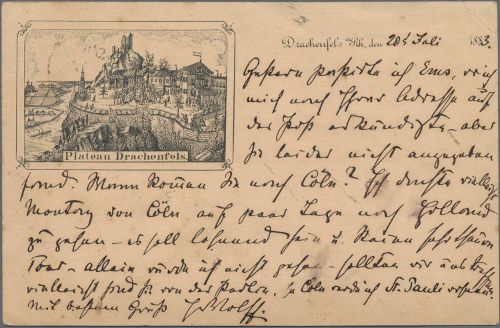 Drachenfels Rh., den 20t Juli 1883.
Plateau Drachenfels.
Gestern passirte ich Ems, wo ich
mich nach Ihrer Adresse auf
der Post erkundigte - aber
Sie leider nicht angegeben
fand. Wann kommen Sie nach Cöln? Ich dachte vielleicht
Montag von Cöln auf paar Tage nach Holland
zu gehen - es soll lohnend sein u. keine
Tour - allein würde ich nicht gehen - sollten wir uns
vielleicht sind Sie von der. In Cöln St. Pauli
Mit bestem Gruß Wolff